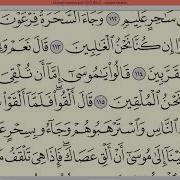 سَٰحِرٍ عَلِيمٍ ١١٢ وَجَآءَ ٱلسَّحَرَةُ فِرْعَوْنَ
إِن كُنَّا نَحْنُ ٱلْغَٰلِبِينَ ١١٣ قَالَ نَعَمْ وَ
قَرَّبِينَ ١١٤ قَالُوا۟ يَٰمُوسَىٰٓ إِمَّآ أَن تُلْقِىَ
نَحْنُ ٱلْمُلْقِينَ ١١٥ قَالَ أَلْقُوا۟ فَلَمَّآ أَلْقَوْا۟
ٱلنَّاسِ وَٱسْتَرْهَبُوهُمْ وَجَآءُو بِسِحْرٍ
إِلَىٰ مُوسَىٰٓ أَنْ أَلْقِ عَصَاكَ فَإِذَا هِىَ تَلْقَفُ